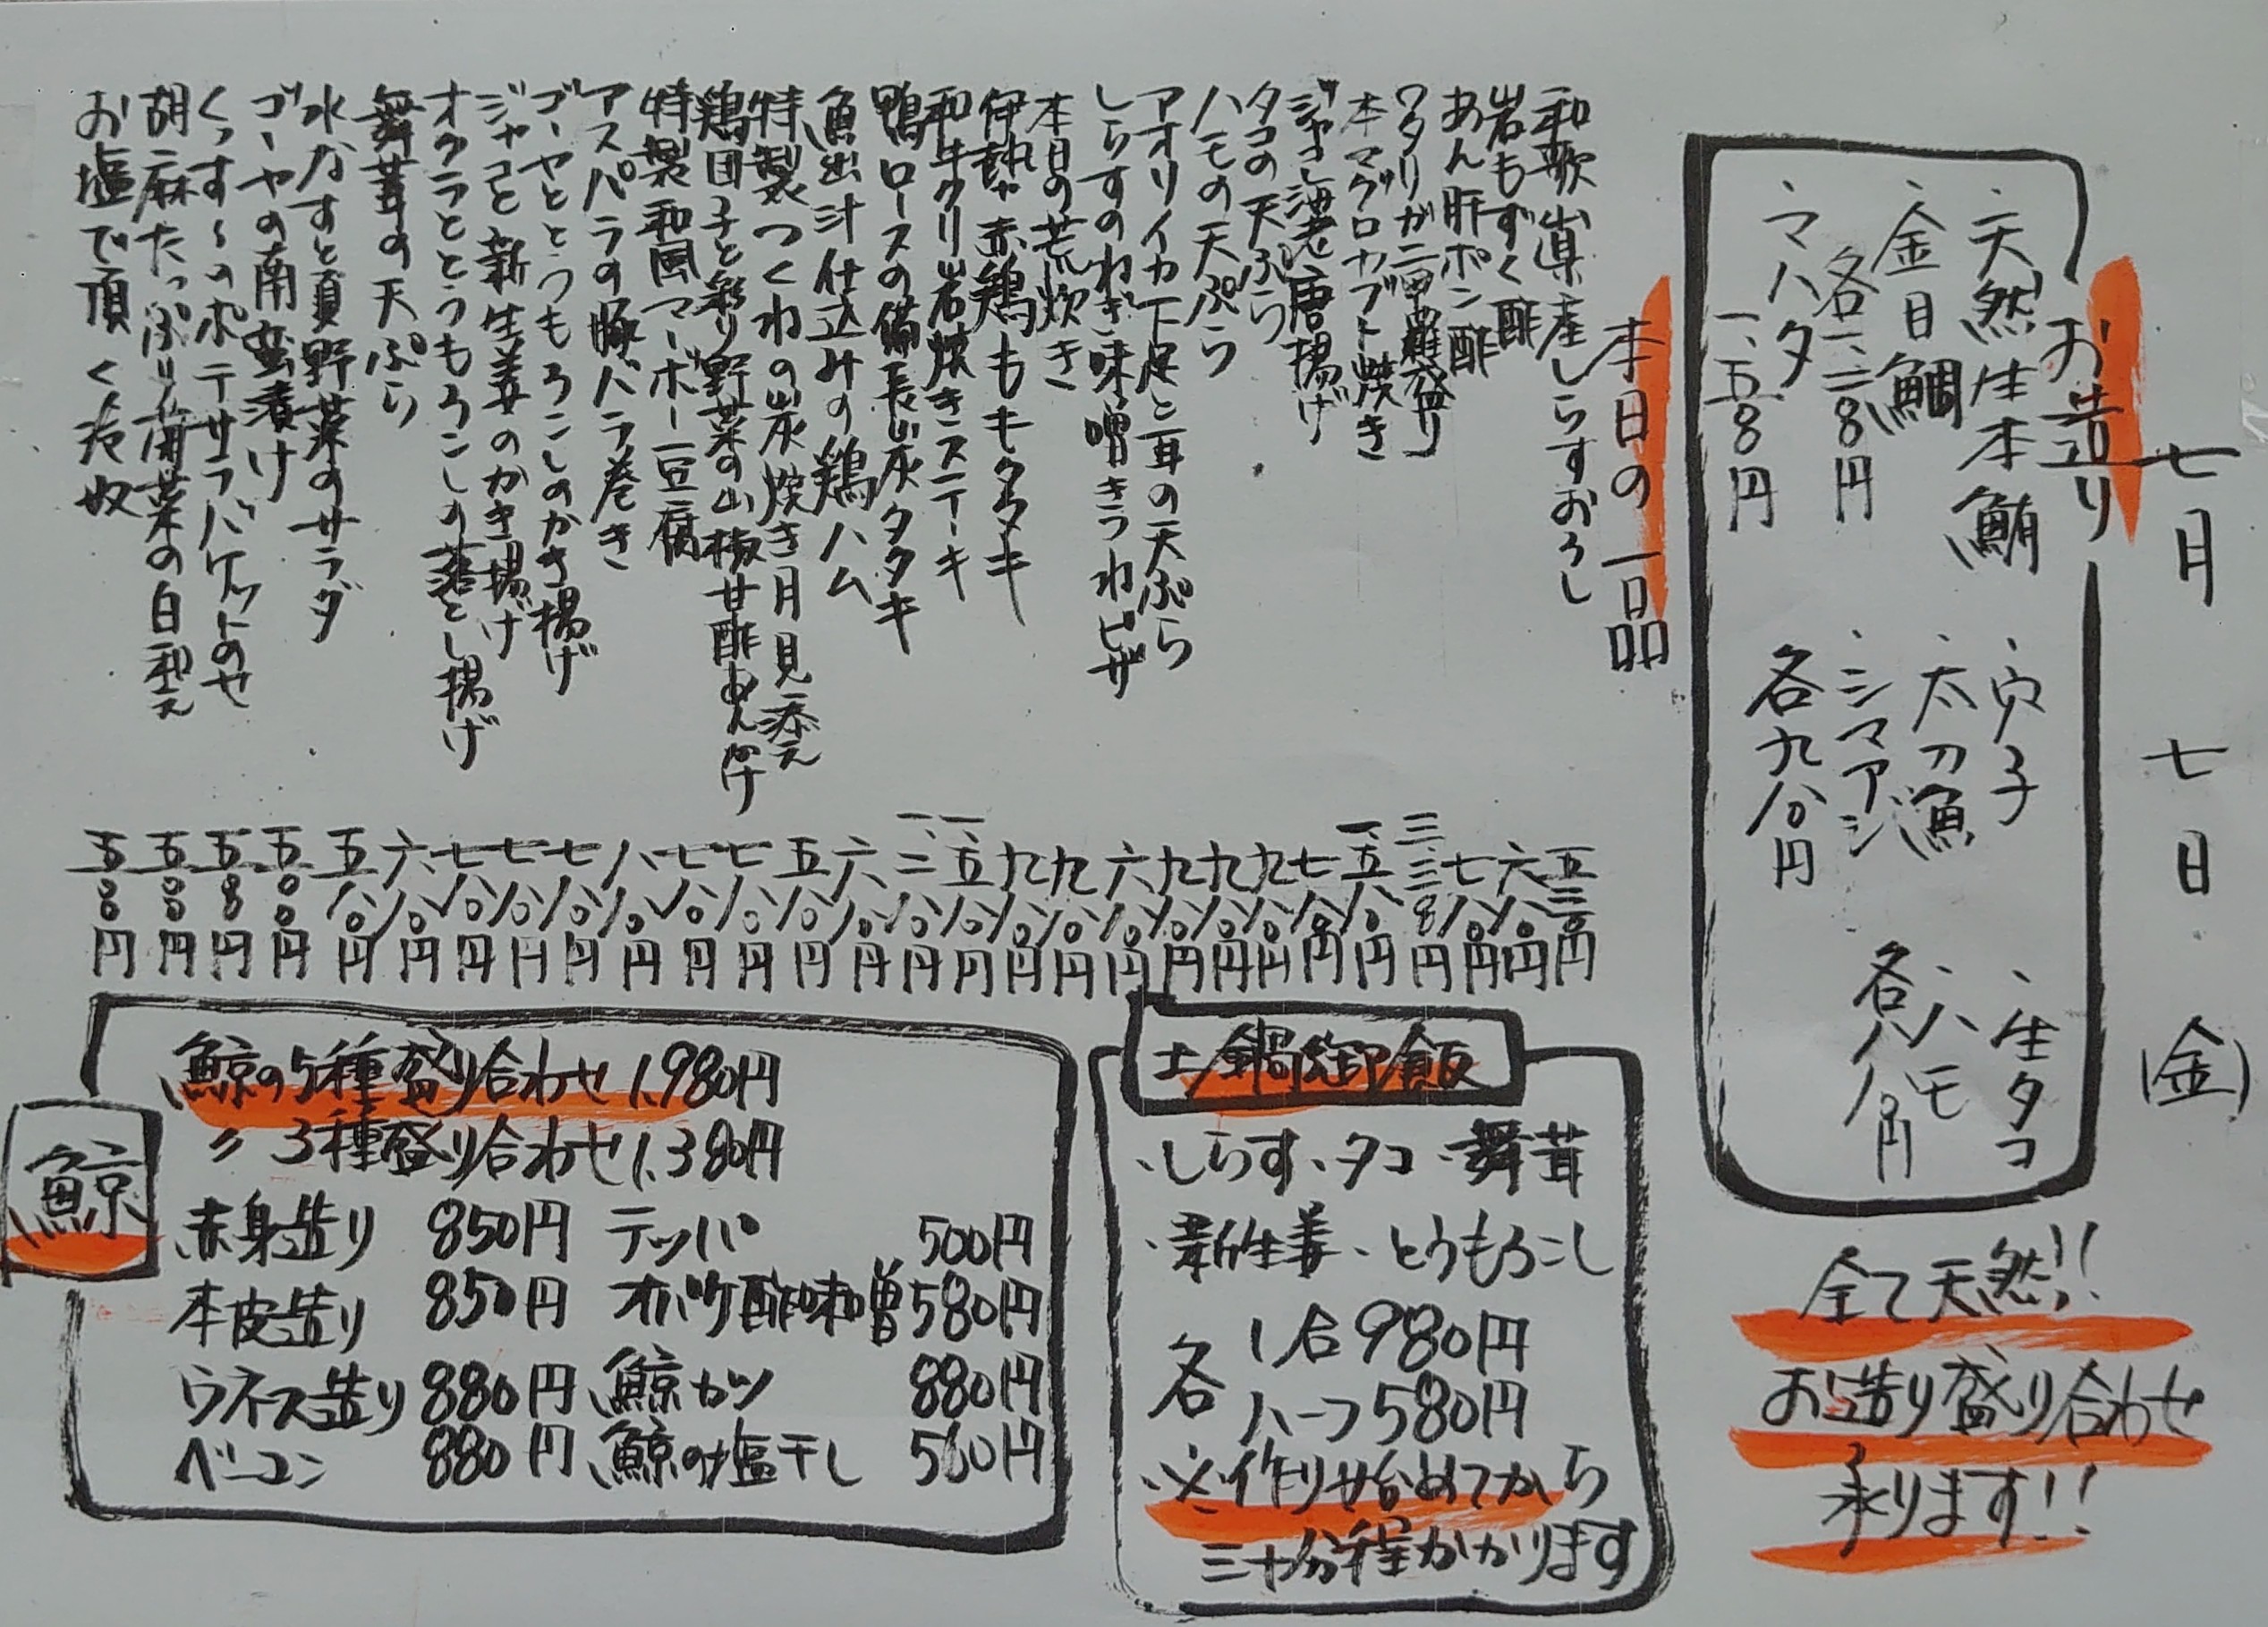 七月七日(金)
お造り
、天然生本鮪
、金日鯛
各一、二八〇円
、マハタ
一、五八〇円
、穴子
、太刀魚
、シマアジ
各九八〇円
、生タコ
、ハモ
各八八〇円
全て天然!!
お造り盛り合わせ
承ります!!
本日の一品
和歌山県産しらすおろし 五三〇円
岩もずく酢 六八〇円
あん肝ポン酢 七八〇円
ワタリガニ甲羅盛り 三、三八〇円
本マグロカブト焼き 一、五八〇円
ジャコ海老唐揚げ 七八〇円
タコの天ぷら 九八〇円
ハモの天ぷら 九八〇円
アオリイカ下足と耳の天ぷら 九八〇円
しらすのねぎ味噌きつねピザ 六八〇円
本日の荒炊き 九八〇円
伊勢赤鶏ももタタキ 九八〇円
和牛クリ岩焼きステーキ 一、五八〇円
鴨ロースの備長炭タタキ 一、二八〇円
魚出汁仕込みの鶏ハム 六八〇円
特製つくねの炭焼き月見添え 五八〇円
鶏団子と彩り野菜の山椒甘酢あん掛け 七八〇円
特製和風マーボー豆腐 七八〇円
アスパラの豚バラ巻き 八八〇円
ゴーヤととうもろこしのかき揚げ 七八〇円
ジャコと新生姜のかき揚げ 七八〇円
オクラととうもろこしの落とし揚げ 七八〇円
舞茸の天ぷら 六八〇円
水なすと夏野菜のサラダ 五八〇円
ゴーヤの南蛮漬け 五〇〇円
くっす〜のポテサラバケットのせ 五八〇円
胡麻たっぷり青菜の白和え 五八〇円
お塩で頂く冷奴 五〇〇円
土鍋御飯
、しらす、タコ、舞茸
、新生姜、とうもろこし
各 1合980円
ハーフ580円
※作り始めてから
三十分程かかります
鯨
鯨の5種盛り合わせ 1,980円
〃 3種盛り合わせ 1,380円
赤身造り 850円 テッパ 500円
本皮造り 850円 オバケ酢味噌 580円
ウネス造り 880円 鯨カツ 880円
ベーコン 880円 鯨の塩干し 500円